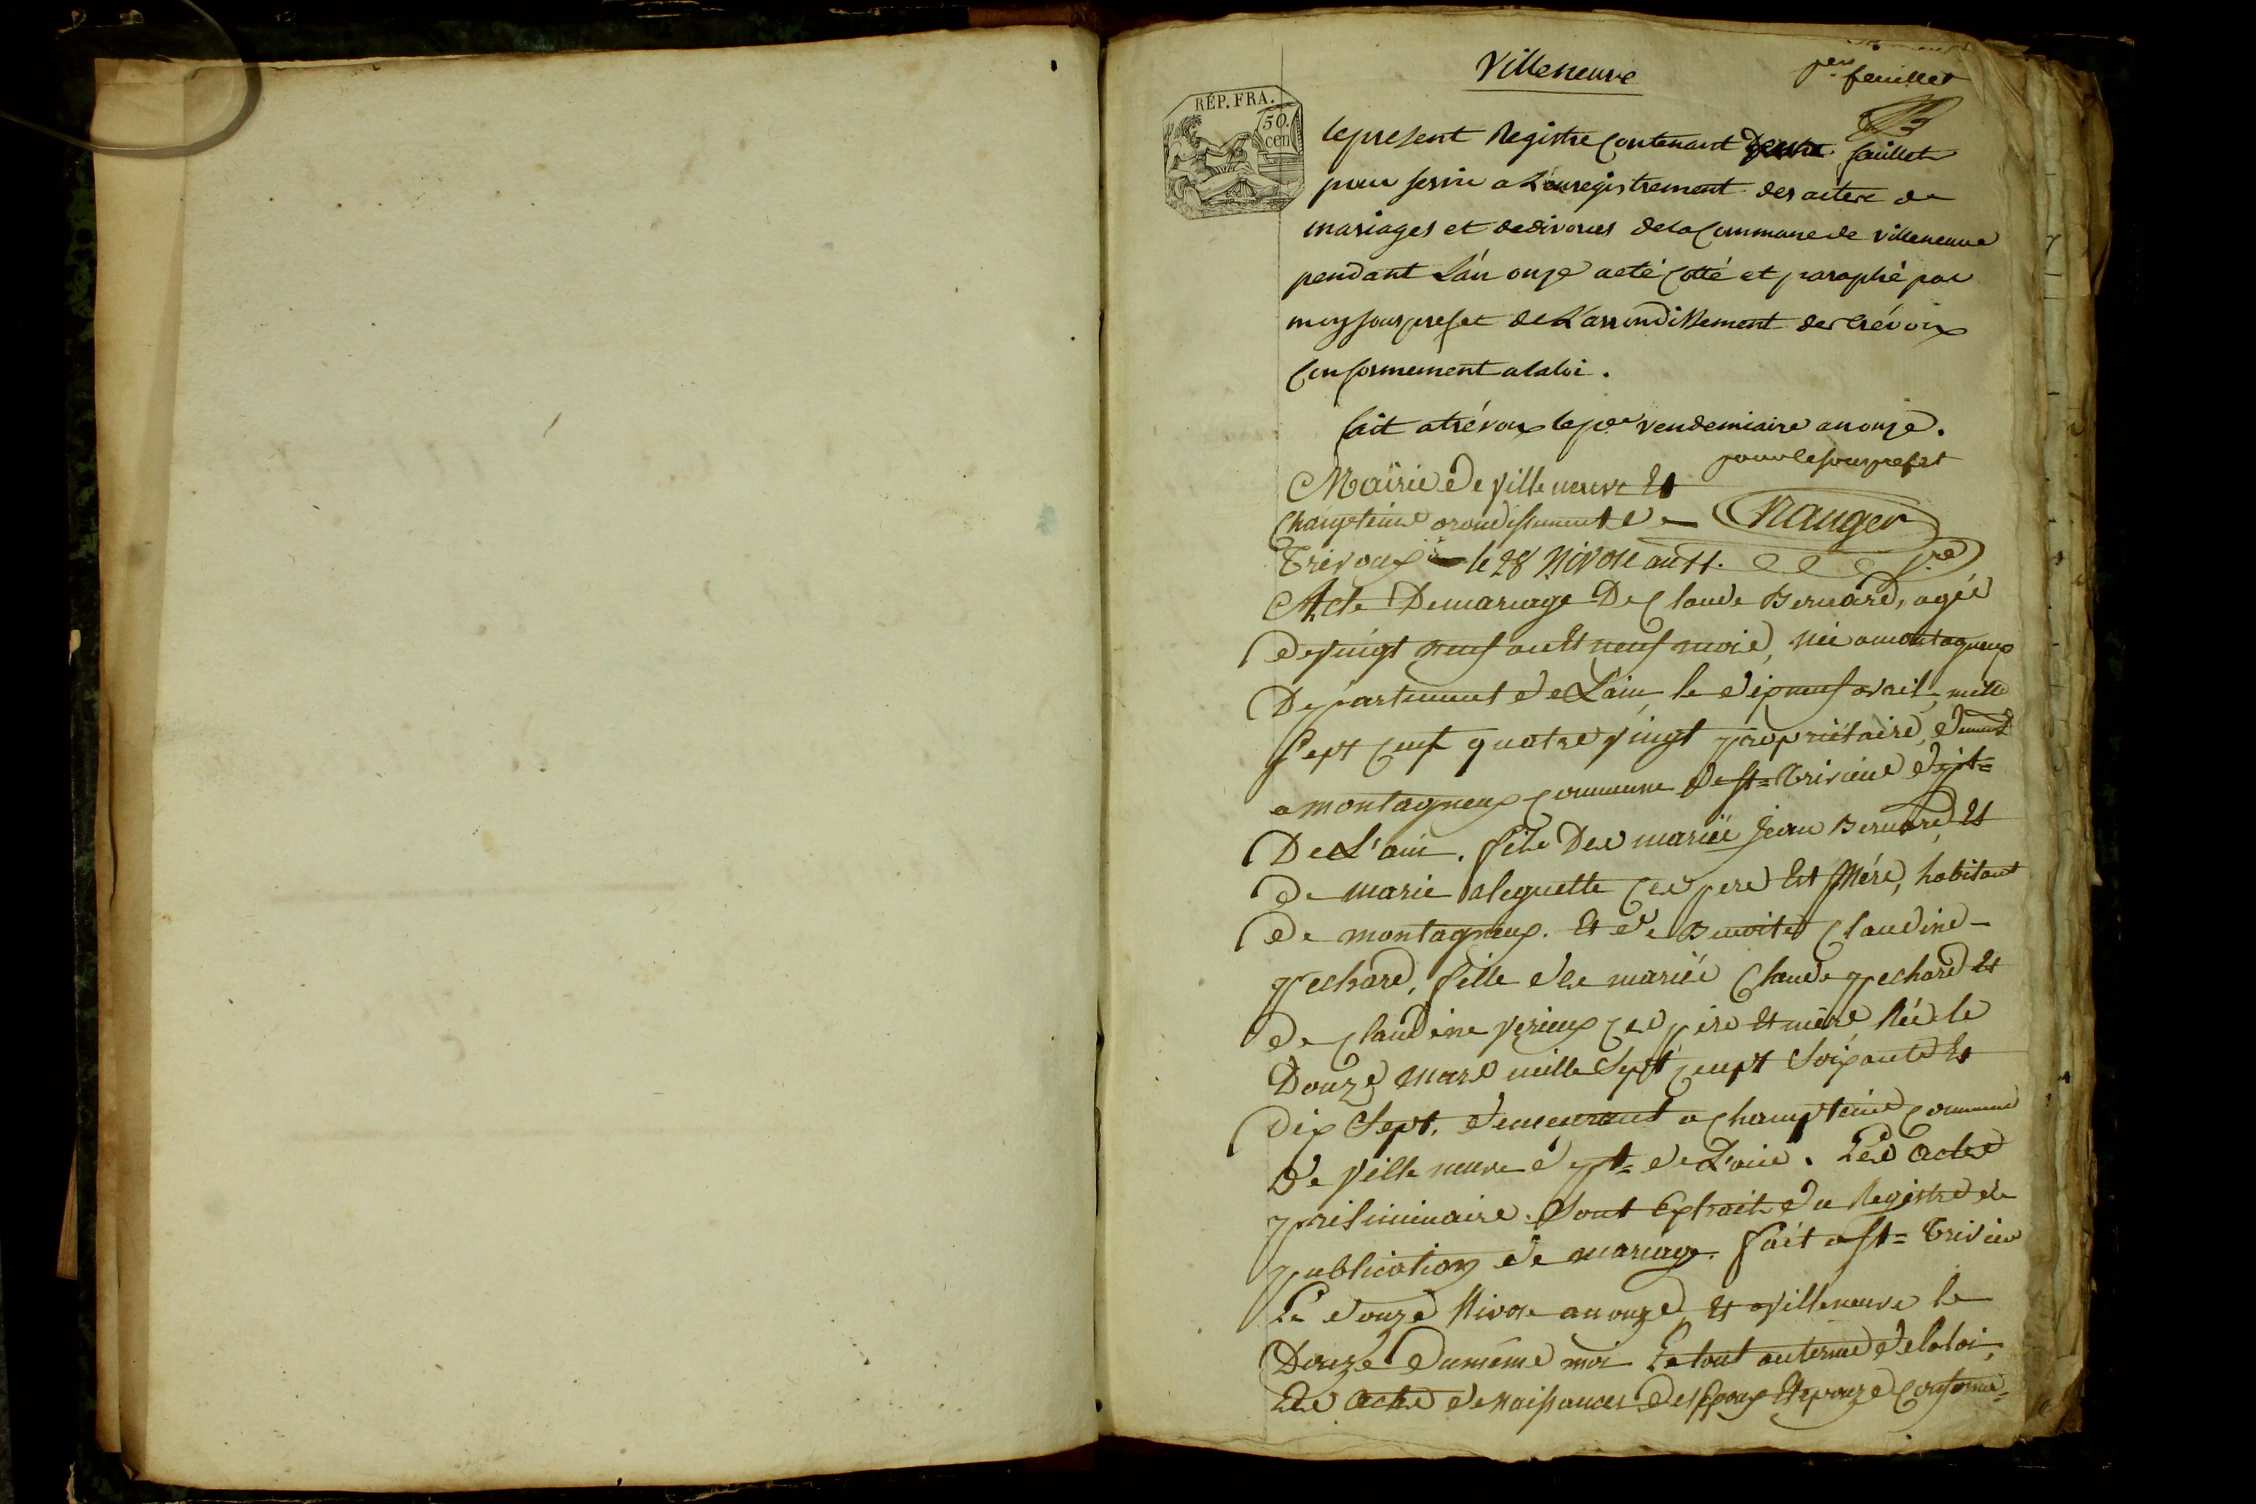 Villeneuve
per feuillet
RÉP. FRA.
50.
cen
le present Registre contenant feuillets
pour servir a L'enregistrement des actes de
mariages et de divorces de la Commune de villeneuve
pendant L'an onze a eté Cotté et paraphé par
moy sous prefet de L'arrondissement de trévoux
Conformement a la loi.
fait a trévoux le per vendemiaire an onze.
pour le sous prefet
Mairie de ville neuve Et
Chaneins arondissement de
Nauger
Trevoux le 28 Nivose an 11.
Acte De mariage De Claude Bernard, agée
de vingt neuf mois, née a montagneux
Departement de L'ain le dix neuf avril, mille
Sept Cent quatre vingt propriétaire,
a montagneux Commune de St= Trivier dept=
De L'ain. fils Des mariée Jean Bernard Et
de marie Ces pere Et Mére, habitant
de montagneux. Et de Benoite Claudine
pechard, fille des mariée Claude pechard Et
de Claudine perieux Ces pére Et mére Née le
Douze mars mille Sept Cent Soixante Et
Dix Sept. demeurant a Commune
de Ville neuve dept= de L'ain. Les Actes
priliminaire. Sont Extrait du Registre de
publication de mariage. fait a St= Trivier
Le douze Nivose an onze, Et a villeneuve le
Douze du même moi Le tout au terme de la loi,
Les Actes de Naissances des Epoux Et Epouze Conforme=